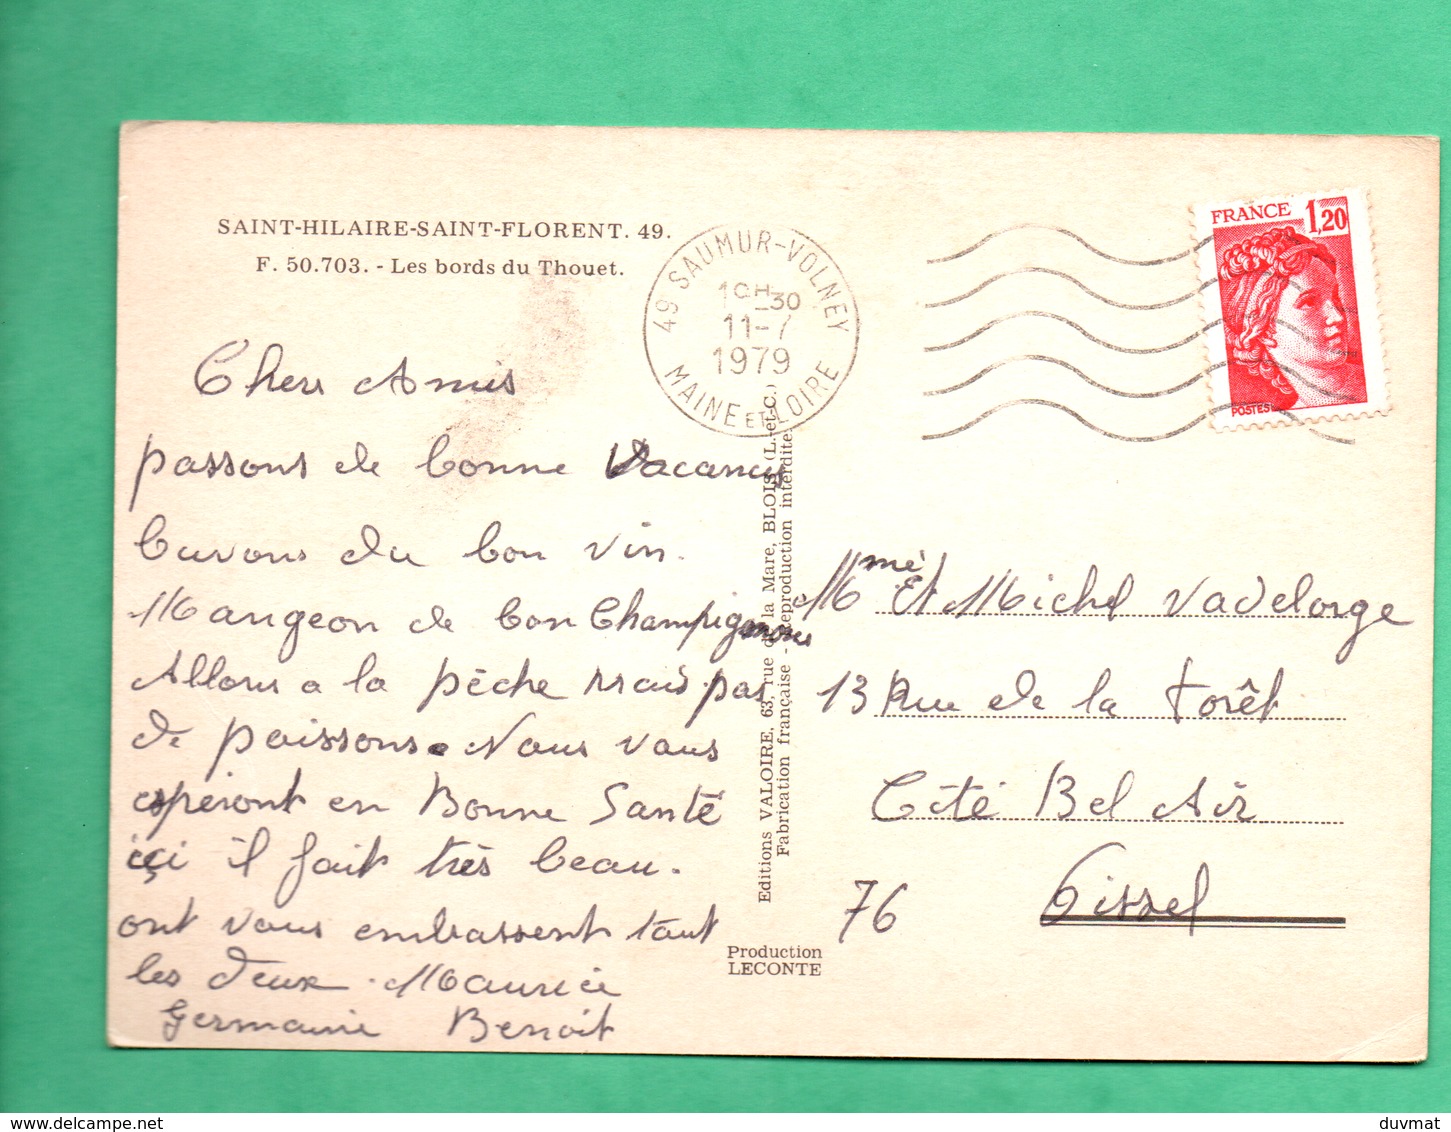 SAINT-HILAIRE-SAINT-FLORENT. 49.
F. 50.703. - Les bords du Thouet.
49 SAUMUR-VOLNEY
H 30
11-7
1979
MAINE ET LOIRE
FRANCE 1,20
POSTES
Chers Amis
passons de bonne Vacances
buvons du bon vin.
Mangeon de bon Champignons
Allons a la pêche mais pas
de poissons. Nous vous
espéront en Bonne Santé
içi il fait très beau.
ont vous embrassent tout
les deux. Maurice
Germaine Benoit
Editions VALOIRE, 63, rue de la Mare, BLOIS (L.-et-C.)
Fabrication française - Reproduction interdite
Production
LECONTE
Mme Et Michel Vadelorge
13 Rue de la Forêt
Cité Bel Air
76 Gissel
duvmat